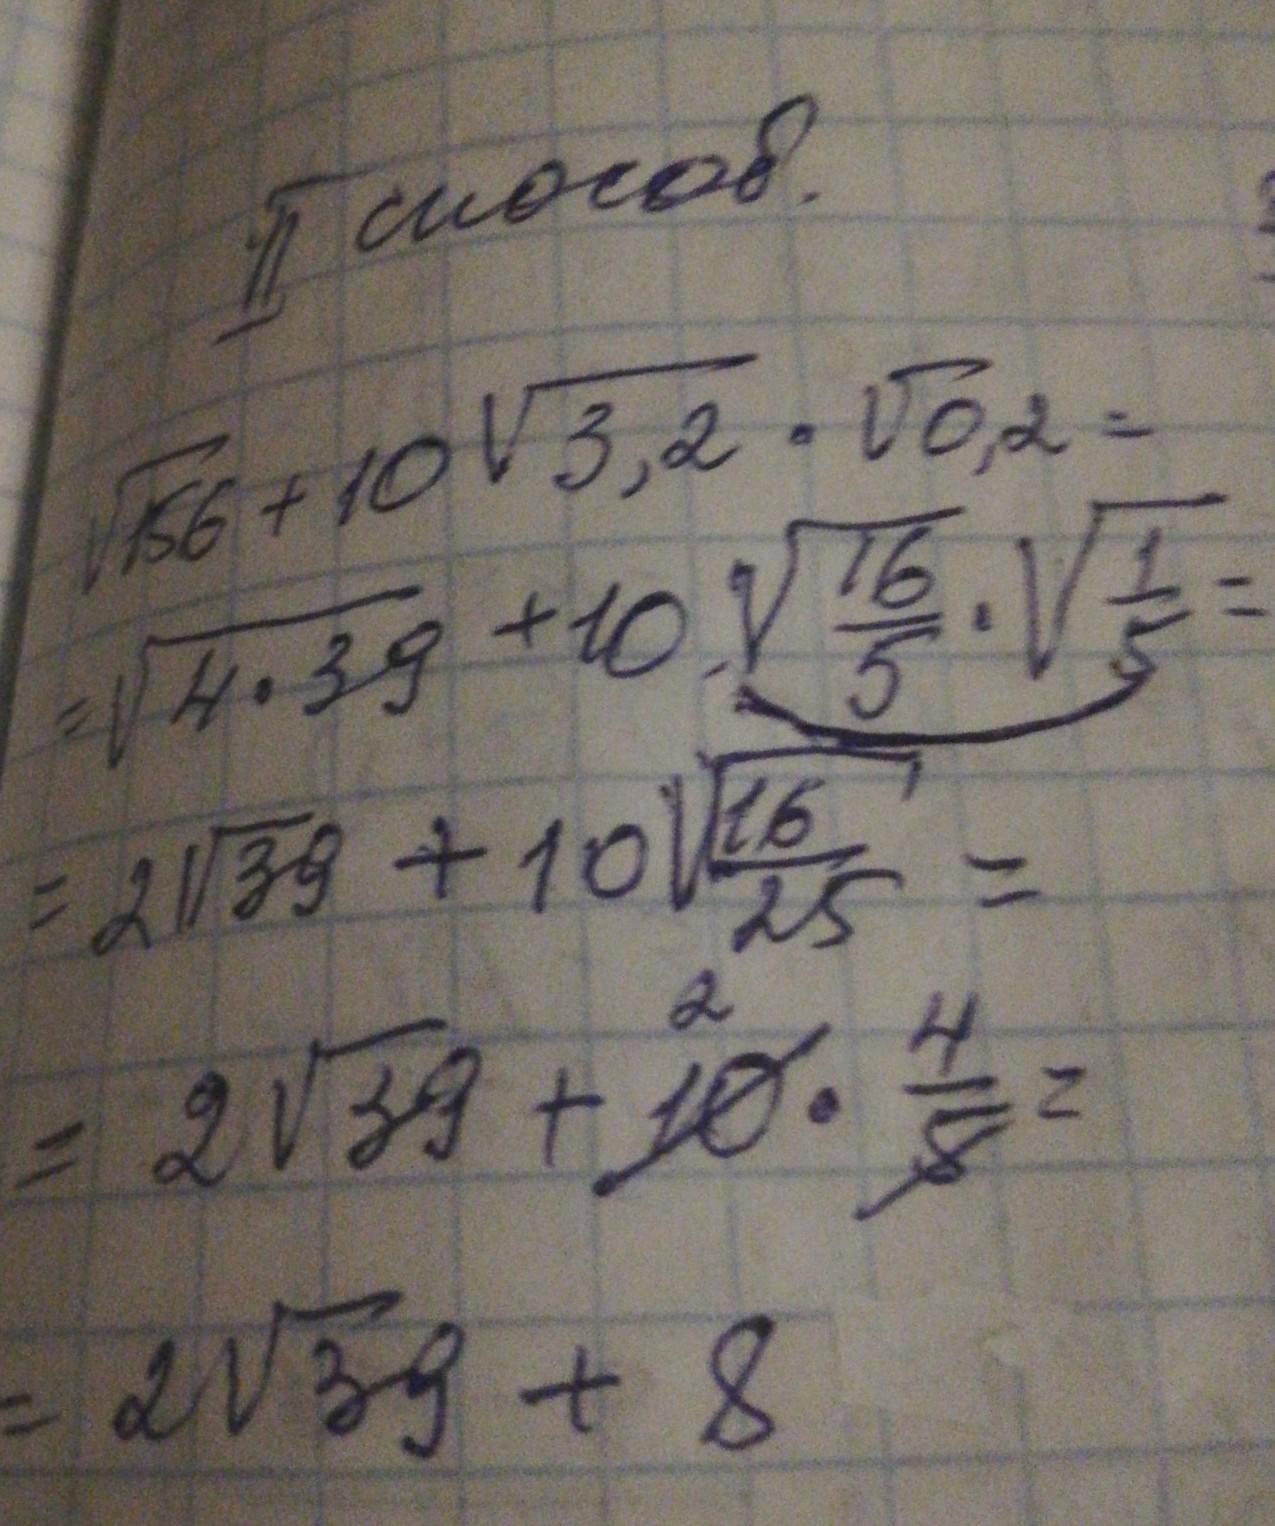 II способ.
√156 + 10√3,2 · √0,2 =
= √4·39 + 10 · √16/5 · √1/5 =
= 2√39 + 10√16/25 =
= 2√39 + 10 · 4/5 = 2
= 2√39 + 8